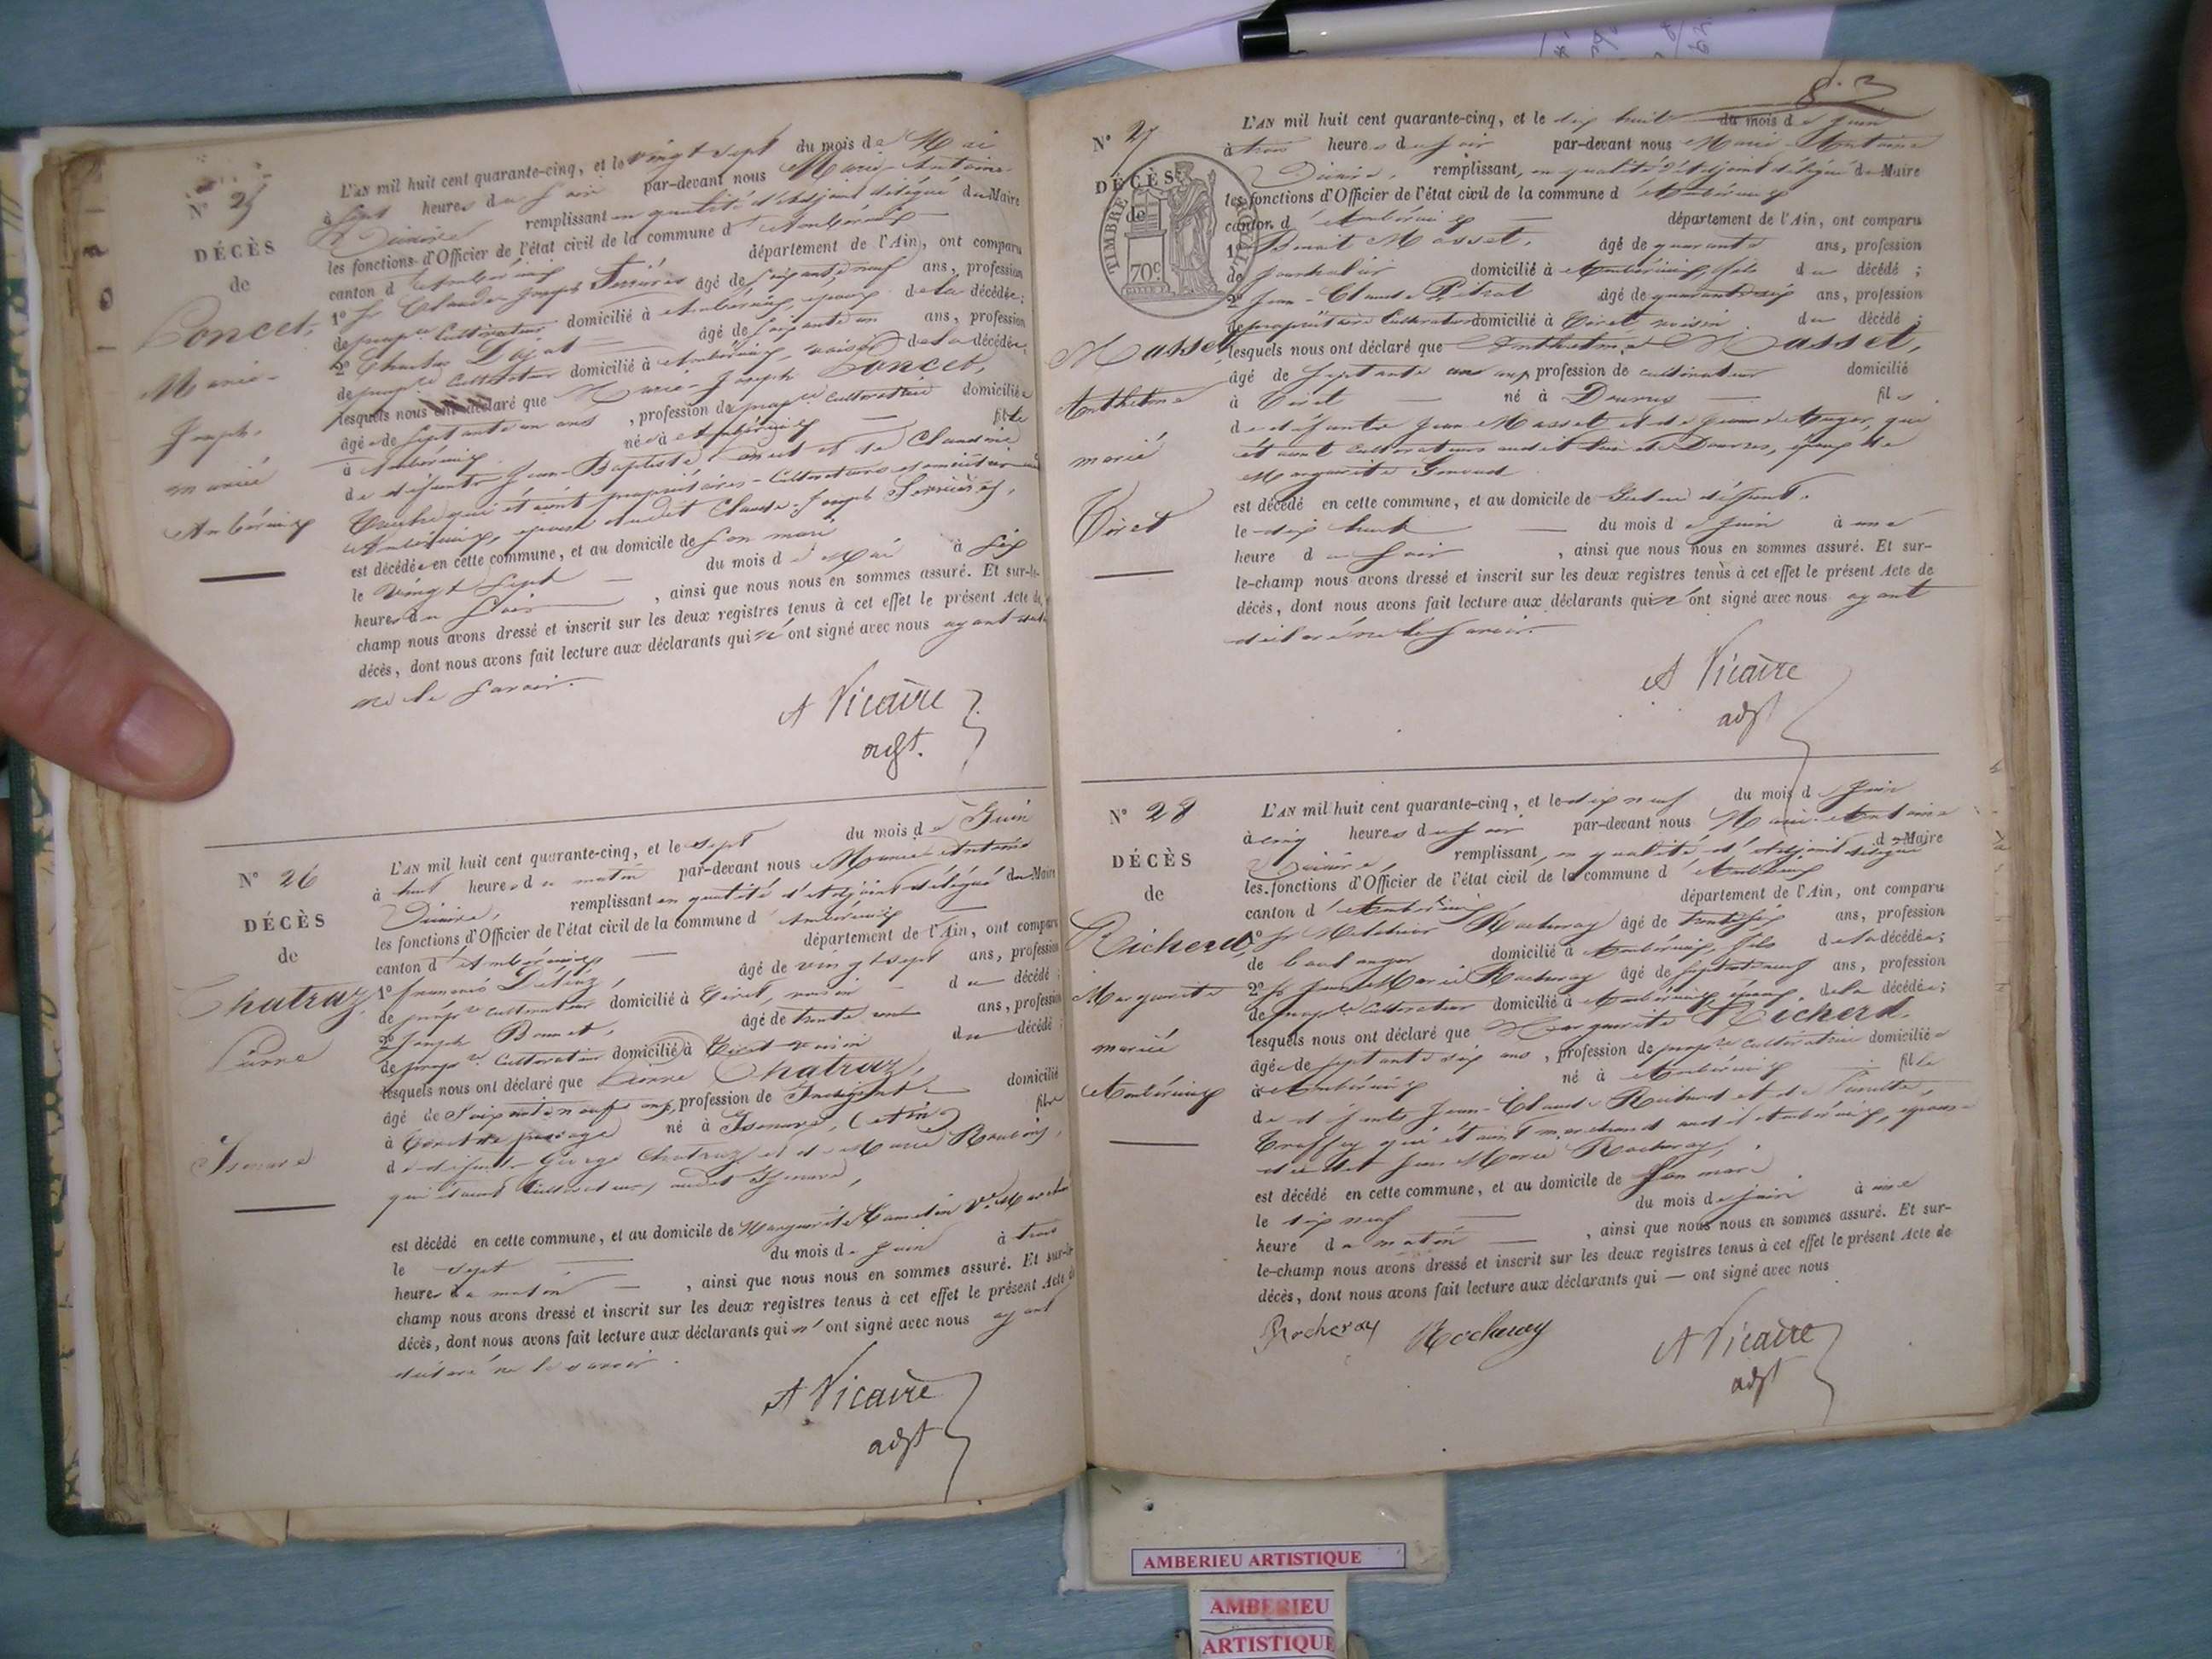 N° 25
DÉCÈS
de
Poncet,
Marie-
Joseph,
mariée
Ambérieux
L'AN mil huit cent quarante-cinq, et le vingt sept du mois de Mai
à sept heures du soir par-devant nous Marie-Antoine
Vicaire remplissant en qualité d'Adjoint délégué du Maire
les fonctions d'Officier de l'état civil de la commune d'Ambérieux
canton d'Ambérieux département de l'Ain, ont comparu
1° Sr Claude Joseph âgé de soixante neuf ans, profession
de propre Cultivateur domicilié à Ambérieux, époux de la décédée;
2° Charles âgé de soixante un ans, profession
de propre Cultivateur domicilié à Ambérieux, voisin de la décédée;
lesquels nous ont déclaré que Marie-Joseph Poncet,
âgée de septante un ans, profession de propre Cultivatrice domiciliée
à Ambérieux née à Ambérieux fille
de défunts Jean-Baptiste Poncet et de Claudine
qui étaient propriétaires-Cultivateurs
Ambérieux, épouse dudit Claude-Joseph
est décédée en cette commune, et au domicile de son mari
le vingt sept du mois de Mai à six
heures du soir, ainsi que nous nous en sommes assuré. Et sur-le-
champ nous avons dressé et inscrit sur les deux registres tenus à cet effet le présent Acte de
décès, dont nous avons fait lecture aux déclarants qui n'ont signé avec nous ayant
ne le savoir.
A Vicaire
adjt.
N° 26
DÉCÈS
de
Chatraz,
Pierre
Isenave
L'AN mil huit cent quarante-cinq, et le sept du mois de Juin
à huit heures du matin par-devant nous Marie Antoine
Vicaire, remplissant en qualité d'Adjoint délégué du Maire
les fonctions d'Officier de l'état civil de la commune d'Ambérieux
canton d'Ambérieux département de l'Ain, ont comparu
1° francois âgé de vingt sept ans, profession
de propre cultivateur domicilié à Tiret, voisin du décédé;
2° Joseph Bonnet, âgé de trente ans, profession
de propre Cultivateur domicilié à Tiret voisin du décédé;
lesquels nous ont déclaré que Pierre Chatraz,
âgé de soixante neuf ans, profession de Indigent domicilié
à Tiret de passage né à Isenave, (Ain) fils
de défunts George Chatraz et de Marie
qui étaient Cultivateurs audit Isenave,
est décédé en cette commune, et au domicile de Marguerite Ve
le sept du mois de Juin à trois
heures du matin, ainsi que nous nous en sommes assuré. Et sur-le-
champ nous avons dressé et inscrit sur les deux registres tenus à cet effet le présent Acte de
décès, dont nous avons fait lecture aux déclarants qui n'ont signé avec nous ayant
déclaré ne le savoir.
A Vicaire
adjt
83
N° 27
DÉCÈS
de
TIMBRE
70c
Masset,
Anthelme
marié
Tiret
L'AN mil huit cent quarante-cinq, et le dix huit du mois de Juin
à trois heures du soir par-devant nous Marie-Antoine
Vicaire, remplissant, en qualité d'Adjoint délégué du Maire
les fonctions d'Officier de l'état civil de la commune d'Ambérieux
canton d'Ambérieux département de l'Ain, ont comparu
1° Benoit Masset, âgé de quarante ans, profession
de Journalier domicilié à Ambérieux, fils du décédé;
2° Jean-Claude Pétrat âgé de quarante six ans, profession
de propriétaire Cultivateur domicilié à Tiret voisin du décédé;
lesquels nous ont déclaré que Anthelme Masset,
âgé de septante un ans, profession de cultivateur domicilié
à Tiret né à Douvres fils
de défunts Jean Masset et de Jeanne Auger, qui
étaient cultivateurs audit lieu de Douvres, époux de
Marguerite
est décédé en cette commune, et au domicile de
le dix huit du mois de Juin à une
heure du soir, ainsi que nous nous en sommes assuré. Et sur-
le-champ nous avons dressé et inscrit sur les deux registres tenus à cet effet le présent Acte de
décès, dont nous avons fait lecture aux déclarants qui n'ont signé avec nous ayant
déclaré ne le savoir.
A Vicaire
adjt
N° 28
DÉCÈS
de
Richerd,
Marguerite
mariée
Ambérieux
L'AN mil huit cent quarante-cinq, et le dix neuf du mois de Juin
à cinq heures du soir par-devant nous Marie-Antoine
Vicaire, remplissant, en qualité d'Adjoint délégué du Maire
les fonctions d'Officier de l'état civil de la commune d'Ambérieux
canton d'Ambérieux département de l'Ain, ont comparu
1° Sr Melchior Rocheray âgé de trente six ans, profession
de boulanger domicilié à Ambérieux, fils de la décédée;
2° Sr Jean Marie Rocheray âgé de septante neuf ans, profession
de propre Cultivateur domicilié à Ambérieux, époux de la décédée;
lesquels nous ont déclaré que Marguerite Richerd,
âgée de septante six ans, profession de propre cultivatrice domiciliée
à Ambérieux né à Ambérieux fille
de défunts Jean-Claude Richerd et de
qui étaient marchands audit Ambérieux, épouse
dudit Jean Marie Rocheray,
est décédé en cette commune, et au domicile de son mari
le dix neuf du mois de juin à une
heure du matin, ainsi que nous nous en sommes assuré. Et sur-
le-champ nous avons dressé et inscrit sur les deux registres tenus à cet effet le présent Acte de
décès, dont nous avons fait lecture aux déclarants qui — ont signé avec nous
Rocheray Rocheray A Vicaire
adjt
AMBERIEU ARTISTIQUE
AMBERIEU
ARTISTIQUE